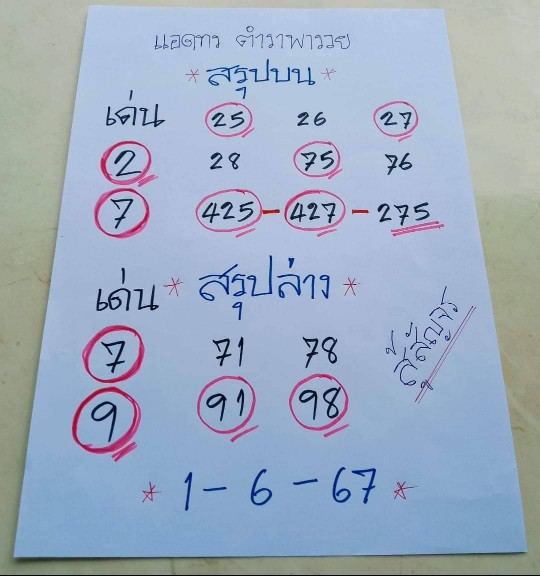 แอดทร ตำราพารวย
* สรุปบน *
เด่น 25 26 27
2 28 75 76
7 425 - 427 - 275
เด่น * สรุปล่าง *
7 71 78
9 91 98
สี่สัญจร
* 1 - 6 - 67 *